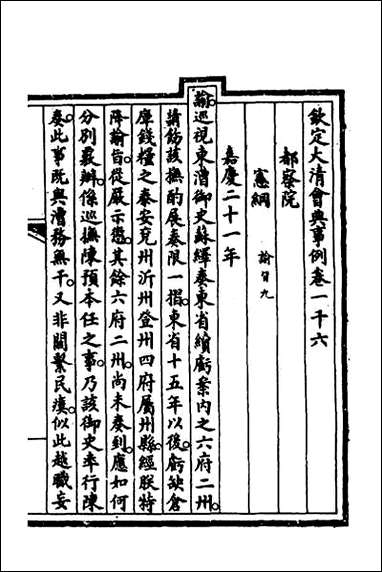 欽定大清會典事例卷一千六
都察院
憲綱 諭旨九
嘉慶二十一年
諭巡視東漕御史蘇繹奏東省續虧案內之六府二州。
請飭該撫酌展奏限一摺。東省十五年以後。虧缺倉
庫錢糧之泰安兗州沂州登州四府屬州縣。經朕特
降諭旨從嚴示懲。其餘六府二州。尚未奏到。應如何
分別覈辦。係巡撫陳預本任之事。乃該御史率行陳
奏。此事既與漕務無干。又非關繫民瘼。似此越職妄